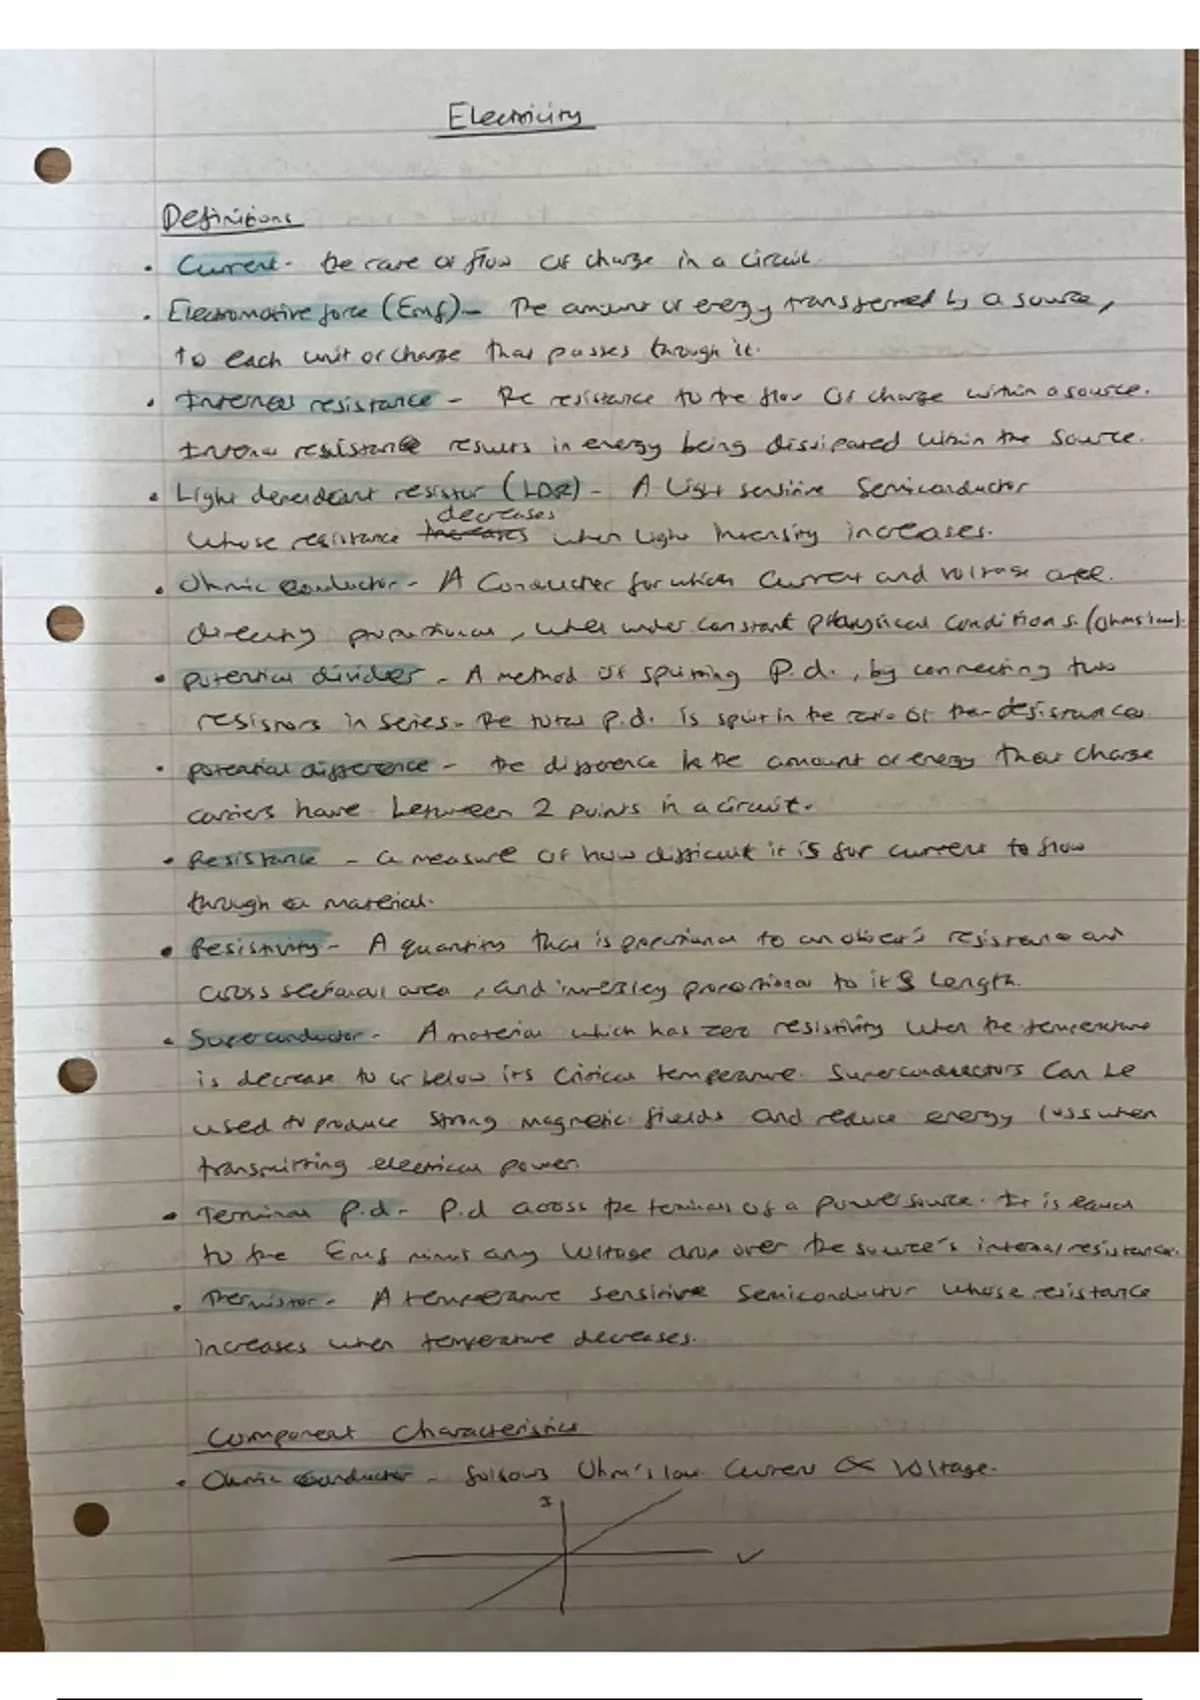 Electricity
Definitions
• Current - the rate of flow of charge in a circuit
• Electromotive force (Emf) - The amount of energy transferred by a source,
to each unit of charge that passes through it.
• Internal resistance - The resistance to the flow of charge within a source.
Internal resistance results in energy being dissipated within the source.
• Light dependant resistor (LDR) - A Light sensitive Semiconductor
decreases
whose resistance increases when light intensity increases.
• Ohmic conductor - A Conductor for which Current and voltage are
directly proportional, when under constant physical conditions. (Ohms law).
• potential divider - A method of splitting P.d., by connecting two
resistors in series. The total p.d. is split in the ratio of their resistances
• potential difference - the difference in the amount of energy that charge
carriers have between 2 points in a circuit.
• Resistance - a measure of how difficult it is for current to flow
through a material.
• Resistivity - A quantity that is proportional to an object's resistance and
cross sectional area, and inversley proportional to its Length.
• Superconductor - A material which has zero resistivity when the temperature
is decrease to or below its Critical temperature. Superconductors Can be
used to produce Strong magnetic fields and reduce energy loss when
transmitting electrical power.
• Terminal p.d - P.d across the terminals of a power source. It is equal
to the Emf minus any Voltage drop over the source's internal resistance.
• Thermistor - A temperature sensitive Semiconductor whose resistance
increases when temperature decreases.
Component Characteristics
• Ohmic conductor - follows Ohm's law Current ∝ Voltage.
I
V